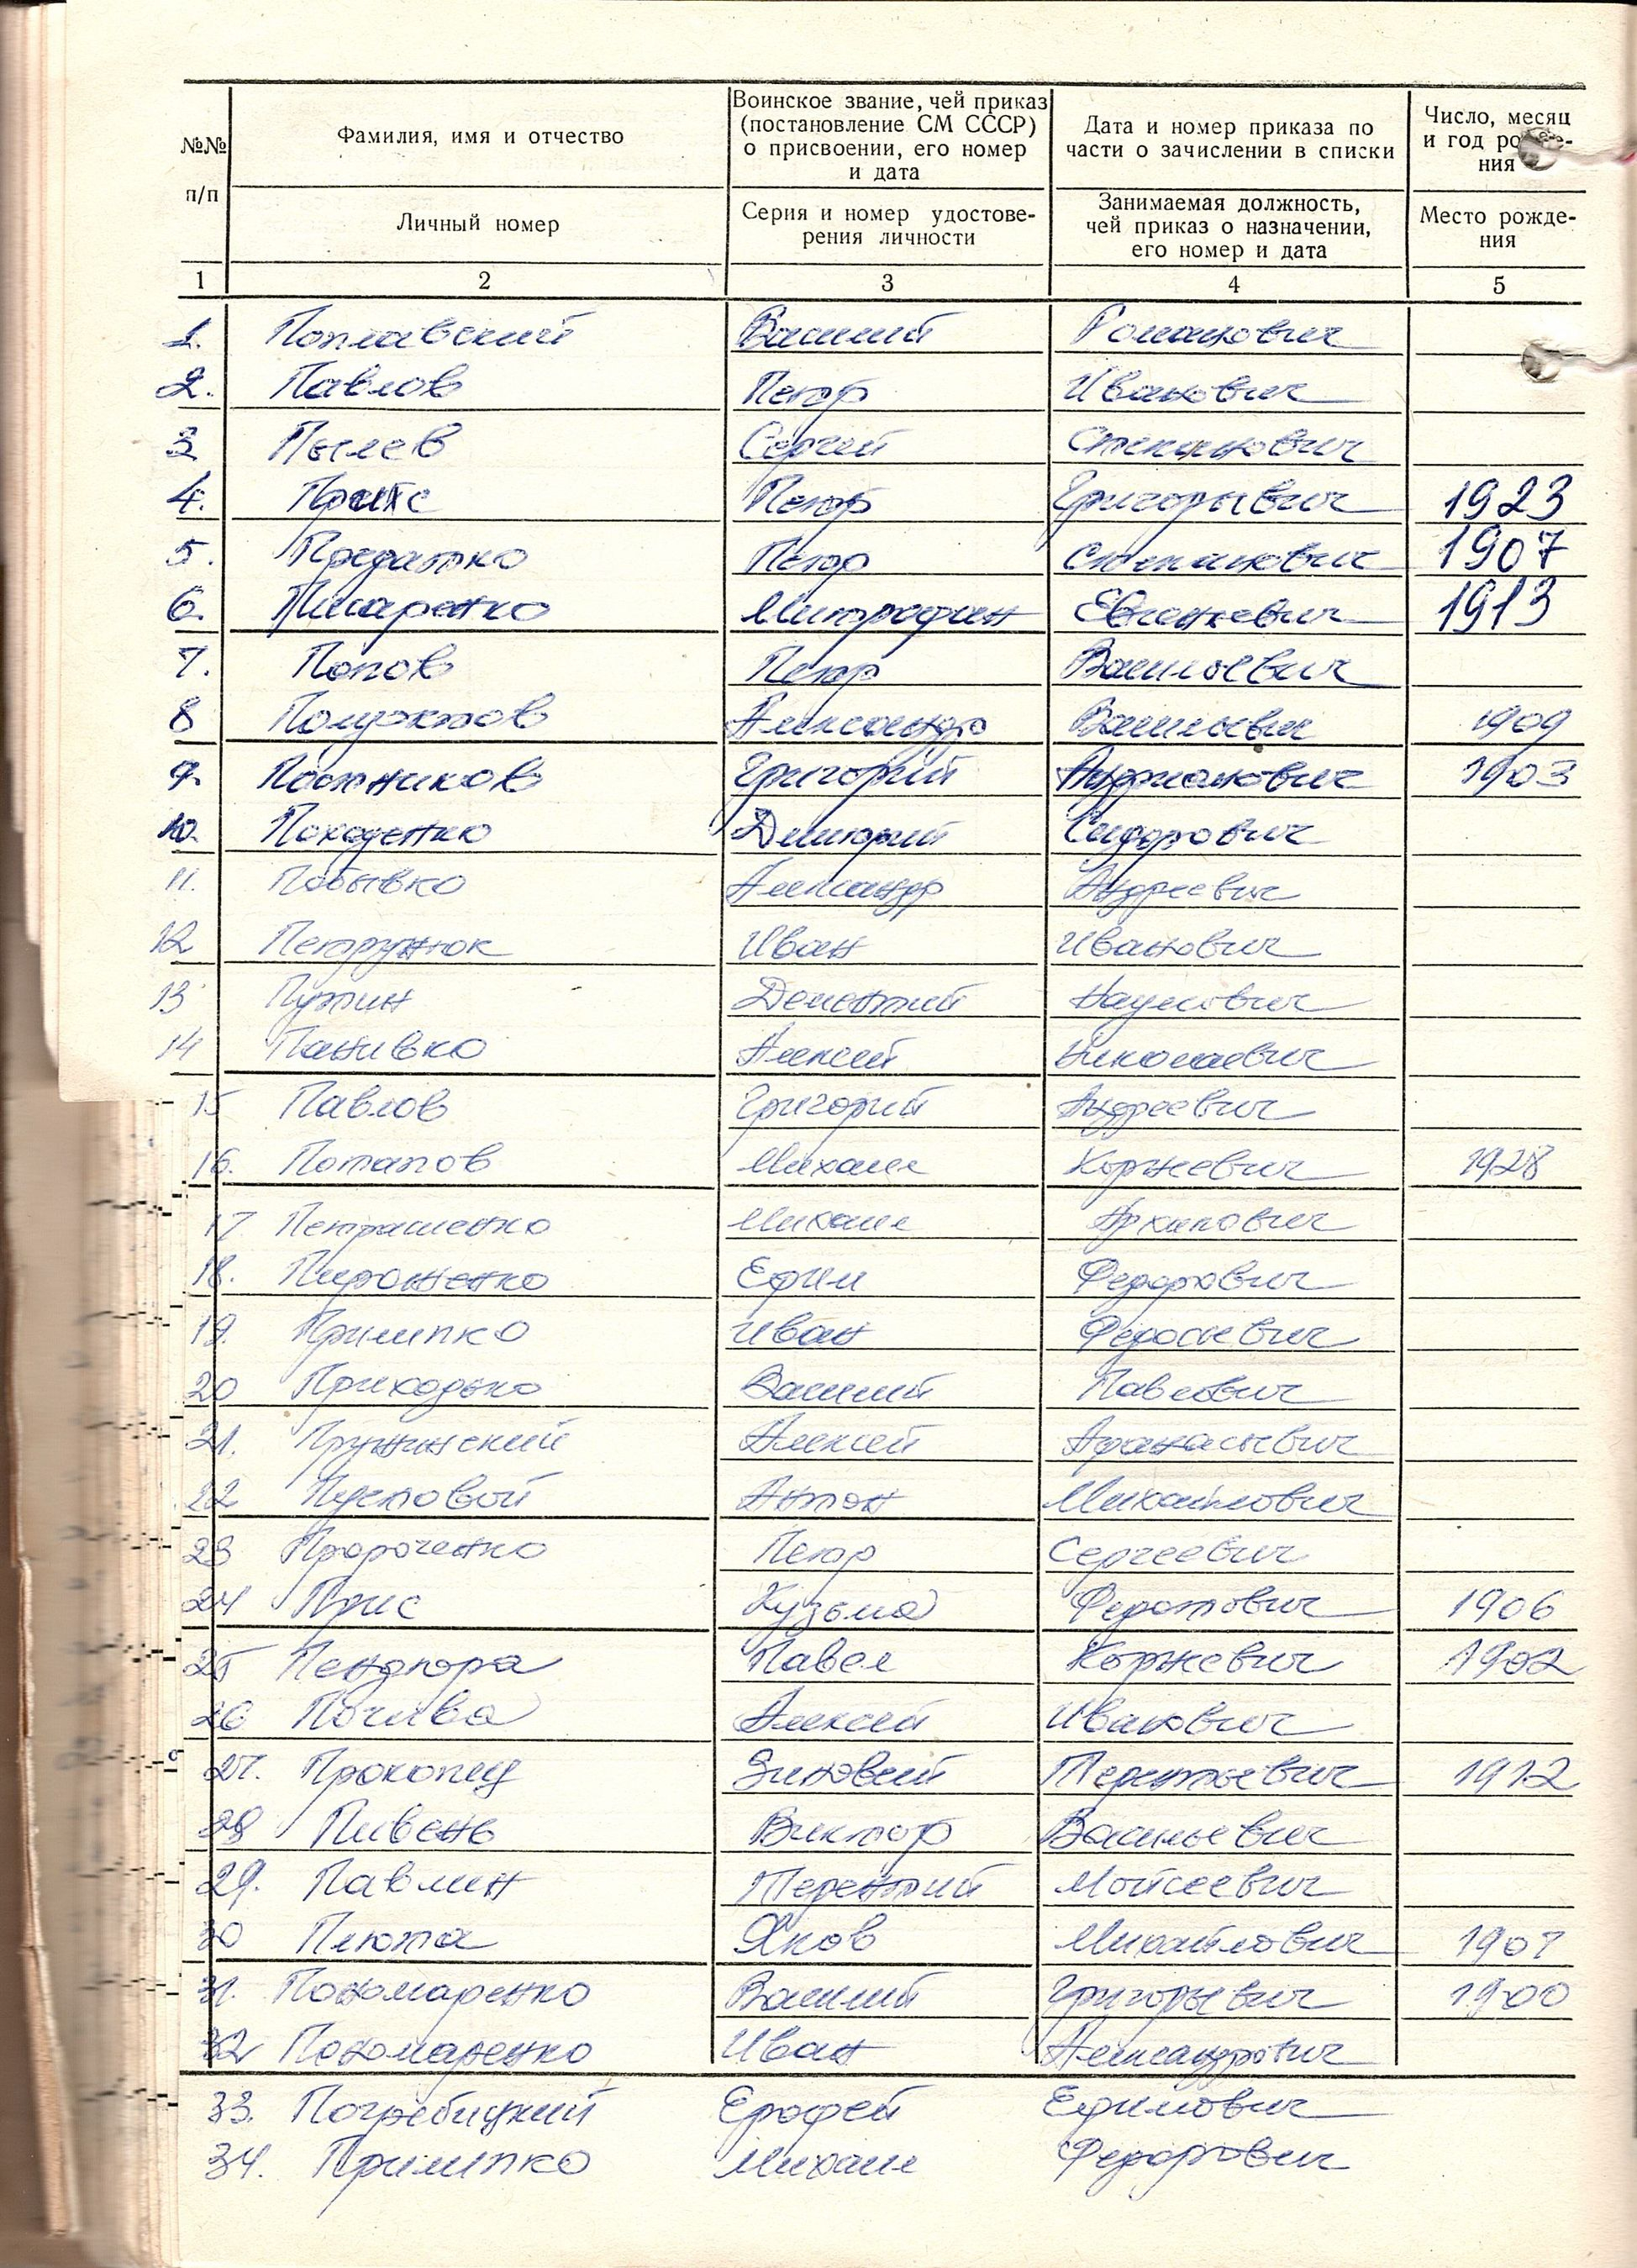 №№ п/п
Фамилия, имя и отчество
Личный номер
Воинское звание, чей приказ
(постановление СМ СССР)
о присвоении, его номер
и дата
Серия и номер удостове-
рения личности
Дата и номер приказа по
части о зачислении в списки
Занимаемая должность,
чей приказ о назначении,
его номер и дата
Число, месяц
и год рожде-
ния
Место рожде-
ния
1 2 3 4 5
1. Поплавский Василий Романович
2. Павлов Петр Иванович
3 Пылев Сергей Степанович
4. Петр Григорьевич 1923
5. Предатко Петр Степанович 1907
6. Писаренко Митрофан 1913
7. Попов Петр Васильевич
8 Полуэктов Александр Васильевич 1909
9. Постников Григорий Андрианович 1903
10. Походенко Дмитрий Сидорович
11. Побывко Александр Андреевич
12 Петрунюк Иван Иванович
13 Путин Дементий Наумович
14 Панивко Алексей Николаевич
15 Павлов Григорий Андреевич
16. Потапов Михаил Корнеевич 1928
17 Петрашенко Михаил Архипович
18. Пироженко Ефим Федорович
19. Примпко Иван Федосиевич
20 Приходько Василий Павлович
21. Пружинский Алексей Афанасьевич
22 Пустовой Антон Михайлович
23 Пророченко Петр Сергеевич
24 Прис Кузьма Федотович 1906
25 Пендюра Павел Корнеевич 1902
26 Почива Алексей Иванович
27. Прокопец Зиновий Терентьевич 1912
28 Пивень Виктор Васильевич
29. Павлин Терентий Мойсеевич
30 Плюта Яков Михайлович 1907
31. Пономаренко Василий Григорьевич 1900
32 Пономаренко Иван Александрович
33. Погребицкий Ерофей Ефимович
34. Примпко Михаил Федорович